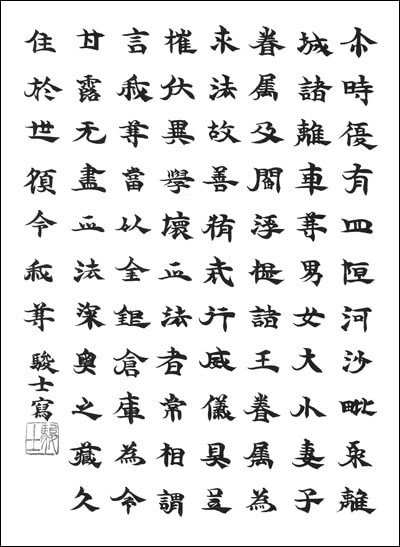 尒時復有四恒河沙毗舍離
城諸離車等男女大小妻子
眷属及閻浮提諸王眷属為
求法故善脩戒行威儀具足
摧伏異學壞正法者常相謂
言我等當以金銀倉庫為令
甘露无盡正法深奥之藏久
住於世願令我等 駿士寫
駿士